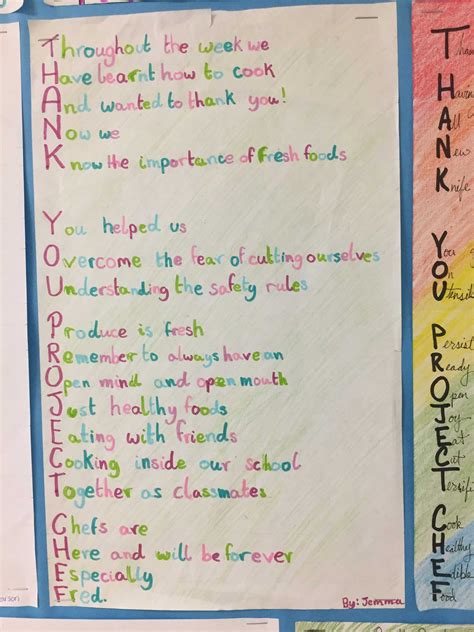 Throughout the week we
Have learnt how to cook
And wanted to thank you!
Now we
Know the importance of fresh foods
You helped us
Overcome the fear of cutting ourselves
Understanding the safety rules
Produce is fresh
Remember to always have an
Open mind and open mouth
Just healthy foods
Eating with friends
Cooking inside our school
Together as classmates
Chefs are
Here and will be forever
Especially
Fred.
By: Jemma
All
New
Knife
You
On
Utensils
Persist
Ready
Open
Joy
Eat
Cut
Terrifi
Cook
Healthy
Edible
Food
erson